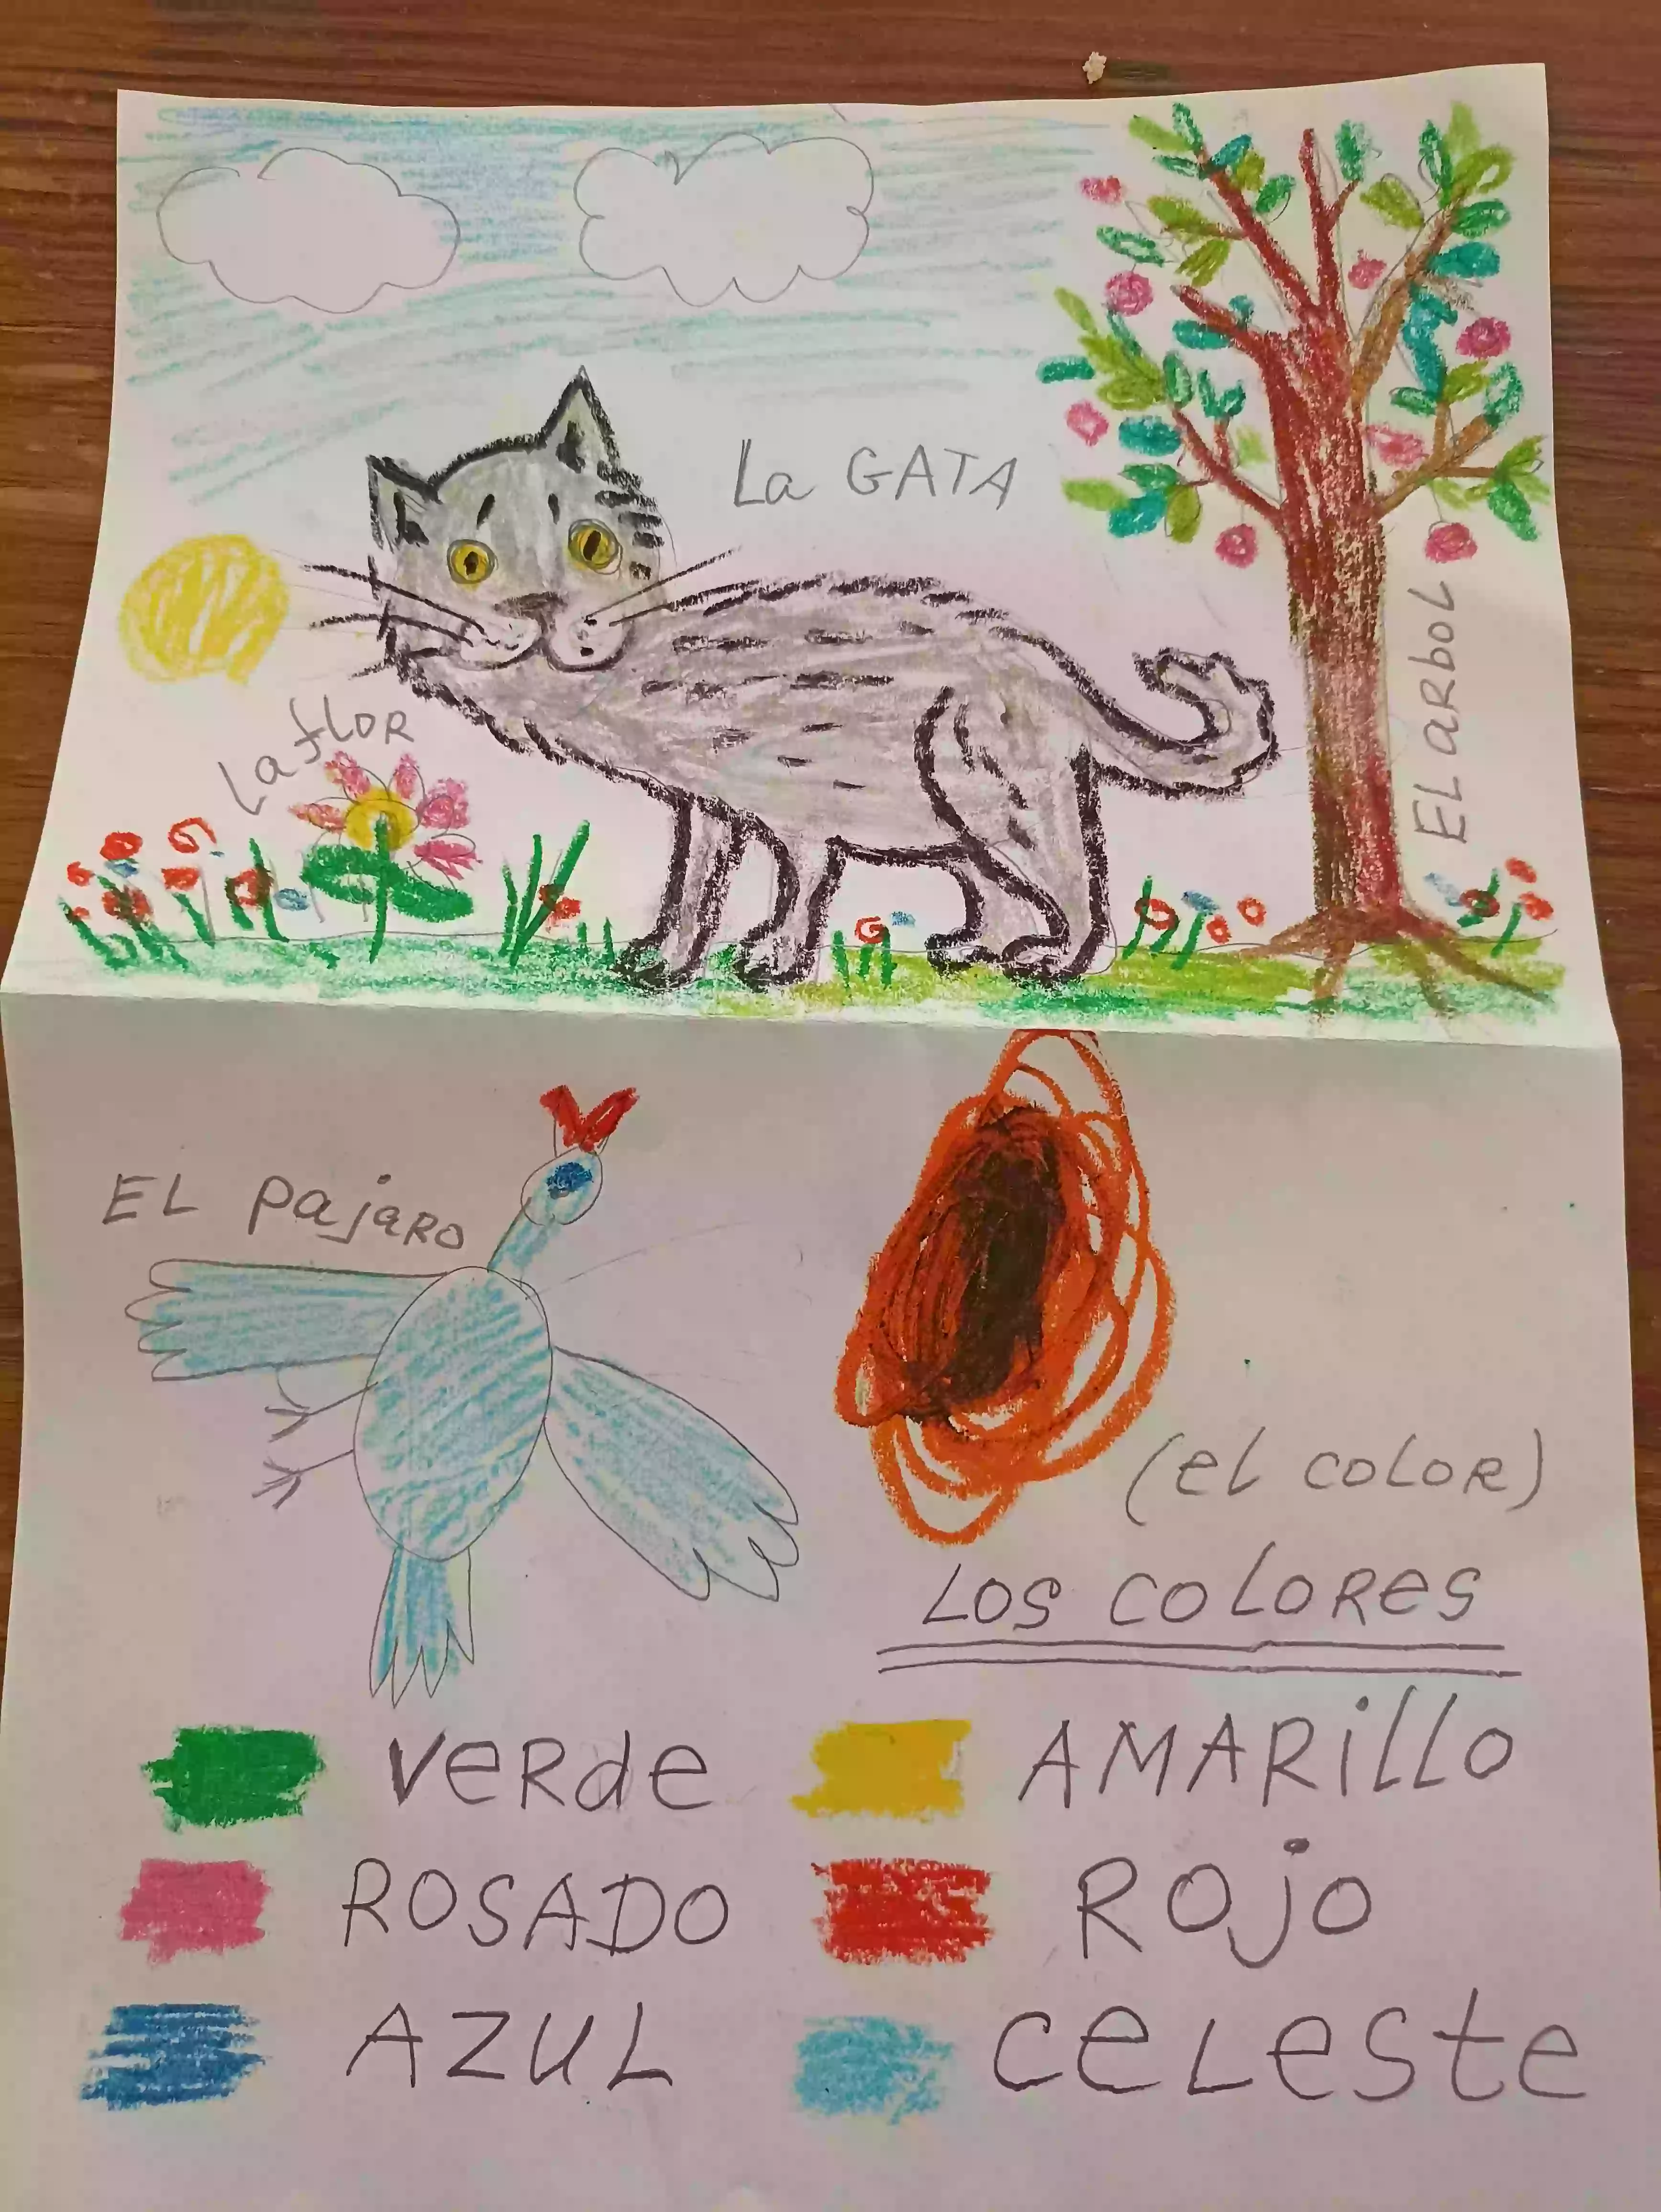 La GATA
La flor
El arbol
EL pajaro
(el color)
Los colores
verde
AMARillo
ROSADO
Rojo
AZUL
celeste